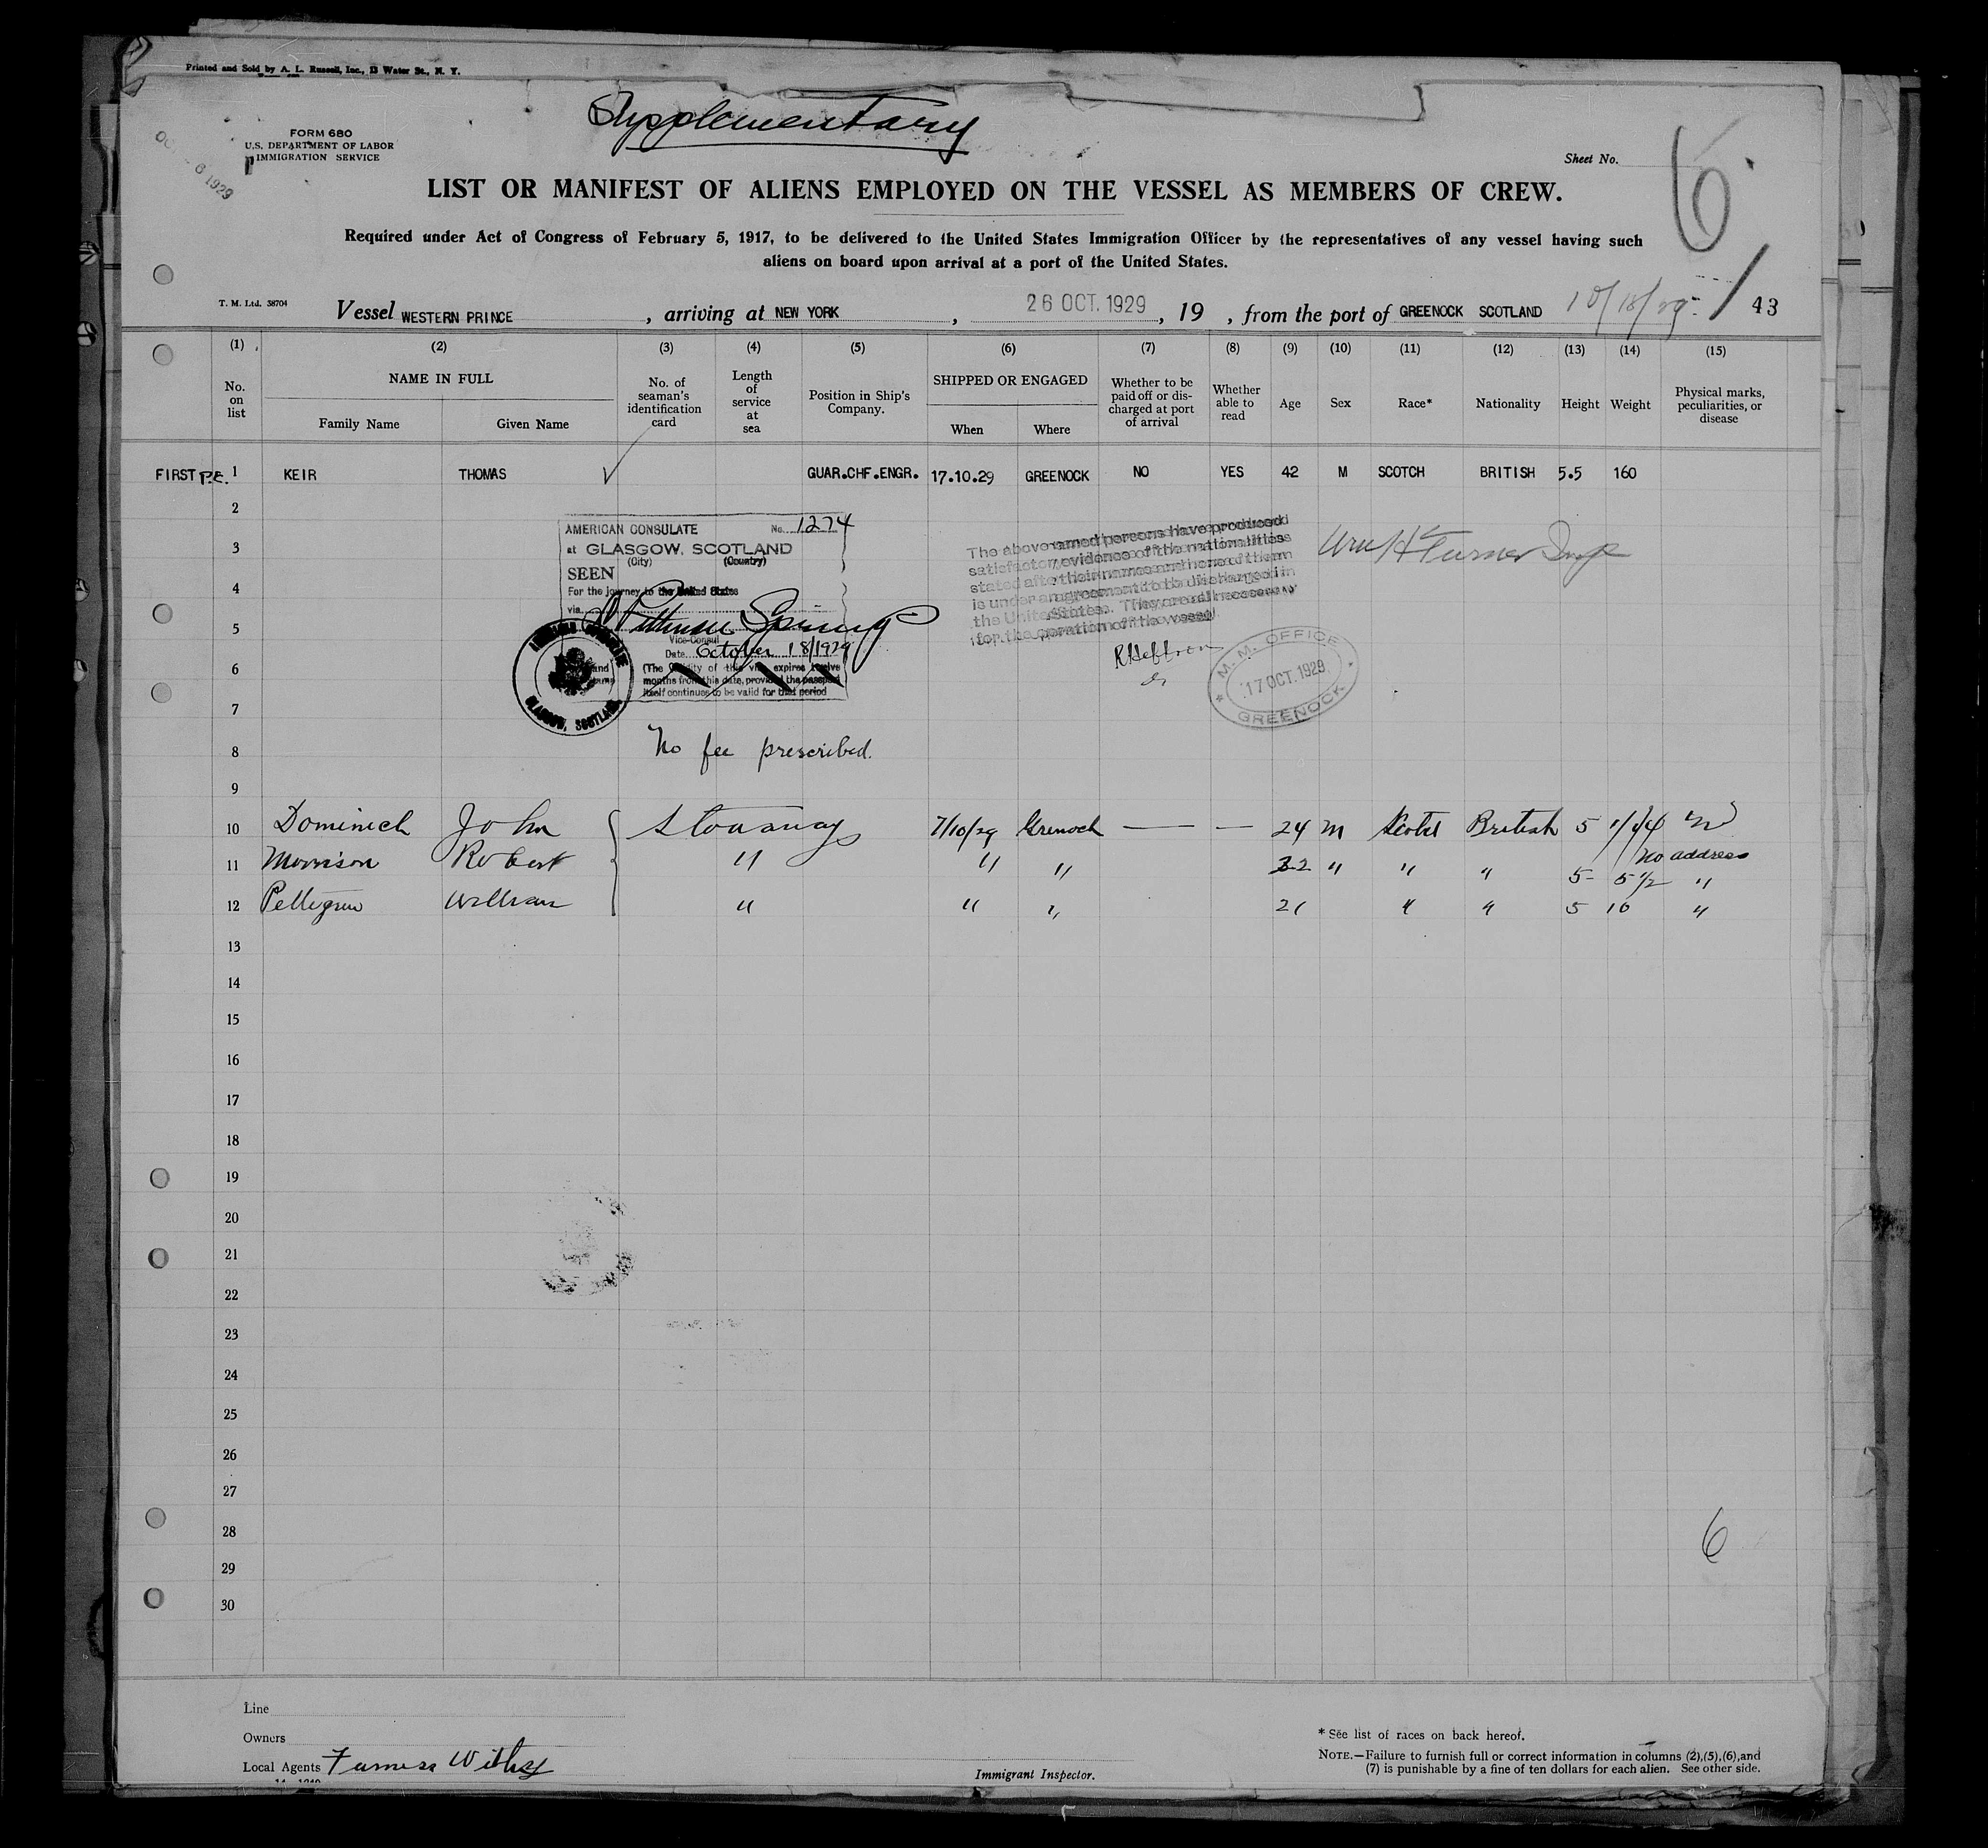 Printed and Sold by A. L. Russell, Inc., 13 Water St., N. Y.
Supplementary
FORM 680
U.S. DEPARTMENT OF LABOR
IMMIGRATION SERVICE
6 1929
Sheet No.
6
LIST OR MANIFEST OF ALIENS EMPLOYED ON THE VESSEL AS MEMBERS OF CREW.
Required under Act of Congress of February 5, 1917, to be delivered to the United States Immigration Officer by the representatives of any vessel having such
aliens on board upon arrival at a port of the United States.
T. M. Ltd. 38704
Vessel WESTERN PRINCE, arriving at NEW YORK, 26 OCT. 1929, 19 , from the port of GREENOCK SCOTLAND 10/18/29 / 43
(1) (2) (3) (4) (5) (6) (7) (8) (9) (10) (11) (12) (13) (14) (15)
No. on list
NAME IN FULL
Family Name Given Name
No. of seaman's identification card
Length of service at sea
Position in Ship's Company.
SHIPPED OR ENGAGED
When Where
Whether to be paid off or discharged at port of arrival
Whether able to read
Age Sex Race* Nationality Height Weight
Physical marks, peculiarities, or disease
FIRST P.E. 1 KEIR THOMAS ✓ GUAR.CHF.ENGR. 17.10.29 GREENOCK NO YES 42 M SCOTCH BRITISH 5.5 160
2
3
4
5
6
7
8
9
AMERICAN CONSULATE No. 1274
at GLASGOW, SCOTLAND
(City) (Country)
SEEN
For the journey to the United States
via
Spring
Vice-Consul
Date October 18/1929
(The validity of this visa expires twelve
months from this date, provided the passport
itself continues to be valid for that period
GLASGOW, SCOTLAND
No fee prescribed.
The above named persons have produced
satisfactory evidence of the nationalities
stated after their names and none of them
is under an agreement to be discharged in
the United States. They are all necessary
for the operation of the vessel
R Heffron
M. M. OFFICE
17 OCT. 1929
GREENOCK
Wm H Turner Insp
10 Dominick John Stowaway 7/10/29 Grenock — — 24 m Scotch British 5
No address
11 Morrison Robert " " " " " " 5 5 1/2 "
12 Pellegrew William " " " 21 " " 5 10 "
13
14
15
16
17
18
19
20
21
22
23
24
25
26
27
28
29
30
6
Line
Owners
Local Agents Furness Withy
Immigrant Inspector.
* See list of races on back hereof.
NOTE.—Failure to furnish full or correct information in columns (2),(5),(6),and
(7) is punishable by a fine of ten dollars for each alien. See other side.